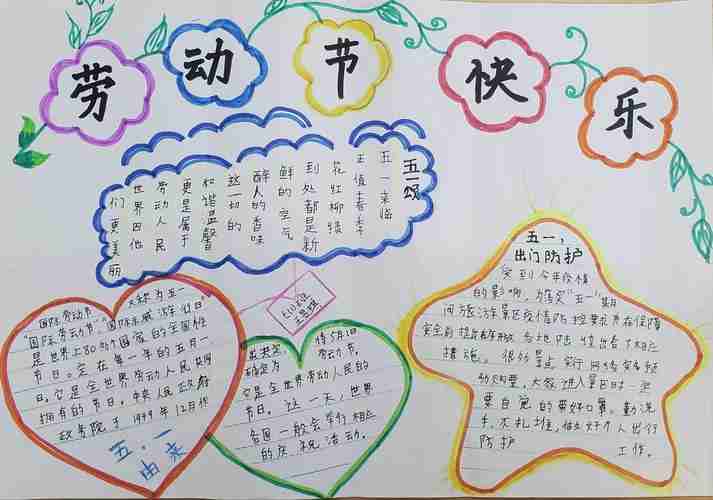 劳动节快乐
五一颂
五一来临
正值春季
花红柳绿
到处都是新
鲜的空气
醉人的香味
这一切的
和谐温馨
更是属于
劳动人民
世界因他
们更美丽
国际劳动节,又称为五一
"国际劳动节"、"国际示威游行日"
是世界上80多个国家的全国性
节日。定在每一年的五月一
日。它是全世界劳动人民共同
拥有的节日。中央人民政府
政务院于1949年12月作
五.一
由来
出决定,将5月1
确定为劳动节。
它是全世界劳动人民的
节日。这一天,世界
各国一般会举行相应
的庆祝活动。
五一,
出门防护
受到今年疫情
的影响,为落实"五一"期
间旅游景区疫情防控要求在保障
安全前提
各地陆续出台了相应
措施。很多景点实行网络实名
预购票,大家进入景区时一定
要自觉的带好口罩、勤洗
手、不扎堆,做好个人出行
防护工作。